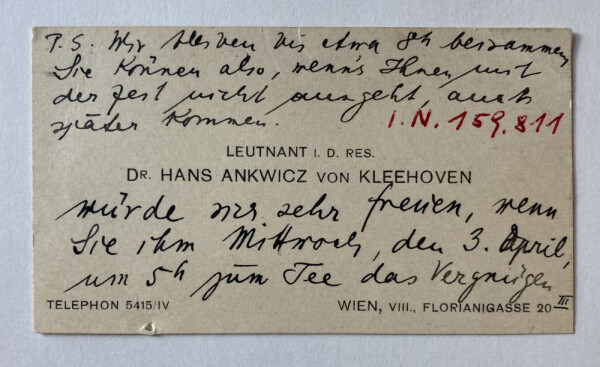 P.S. Wir bleiben bis etwa 8h beisammen,
Sie können also, wenn's Ihnen mit
der Zeit nicht ausgeht, auch
später kommen.
I.N. 159.811
LEUTNANT I. D. RES.
DR. HANS ANKWICZ VON KLEEHOVEN
würde sich sehr freuen, wenn
Sie ihm Mittwoch, den 3. April,
um 5h zum Tee das Vergnügen
TELEPHON 5415/IV
WIEN, VIII., FLORIANIGASSE 20 III